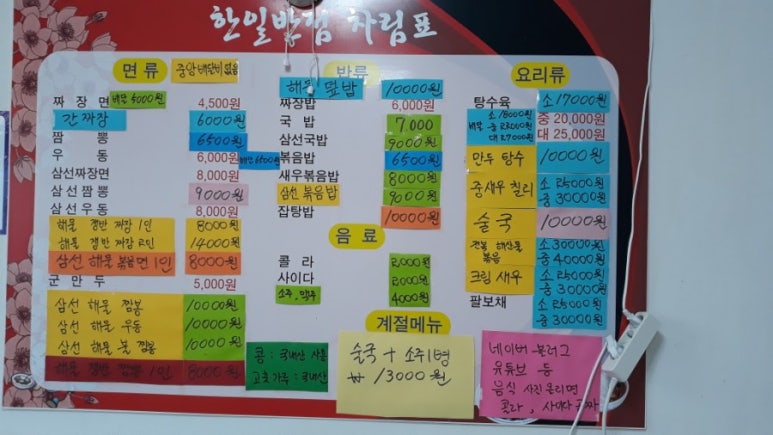 한일반점 차림표
면 류
중앙 배달비 없음
짜 장 면 배달 5000원 4,500원
간짜장 6000원
짬 뽕 6500원
우 동 6,000원 배달 6500원
삼선짜장면 8,000원
삼선짬뽕 9000원
삼선우동 8,000원
해물 쟁반 짜장 1인 8000원
해물 쟁반 짜장 2인 14000원
삼선 해물 볶음면 1인 8000원
군 만 두 5,000원
삼선 해물 짬뽕 10000원
삼선 해물 우동 10000원
삼선 해물 불 짬뽕 10000원
해물 쟁반 짬뽕 1인 8000원
밥류
해물 덮밥 10000원
짜장밥 6,000원
국 밥 7.000
삼선국밥 9000원
볶음밥 6500원
새우볶음밥 8000원
삼선 볶음밥 9000원
잡탕밥 10000원
음 료
콜 라 2,000원
사이다 2000원
소주, 맥주 4000원
콩 : 국내산
고춧가루 : 국내산
요리류
탕수육 소 17000원
중 20,000원
대 25,000원
배달
소 18000원
중 22000원
대 27000원
만두 탕수 10000원
중새우 칠리 소 25000원
중 30000원
술국 10000원
전복 해산물 볶음 소 30000원
중 40000원
크림 새우 소 25000원
중 30000원
팔보채 소 25000원
중 30000원
계절메뉴
술국 + 소주1병
₩ 13000원
네이버 블러그
유튜브 등
음식 사진 올리면
콜라, 사이다 공짜